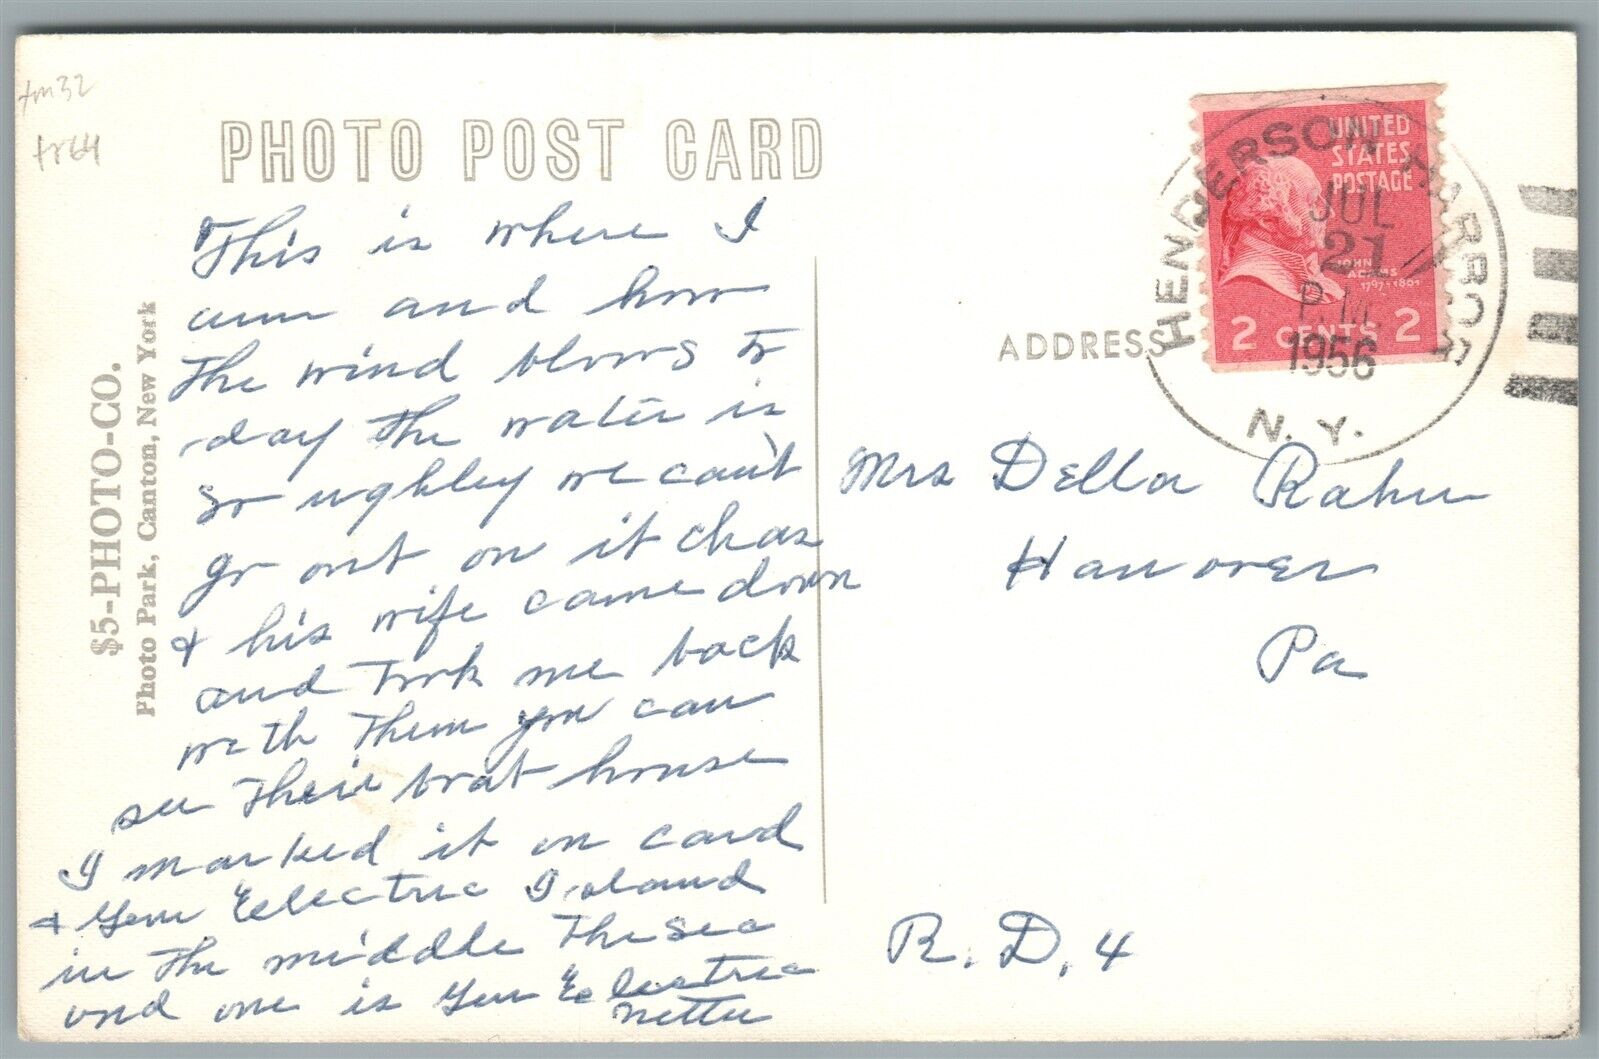 tm32
tr64
PHOTO POST CARD
$5-PHOTO-CO.
Photo Park, Canton, New York
This is where I
am and how
the wind blows to
day the water is
so ughley we can't
go out on it Chas
& his wife came down
and took me back
with them you can
see their boat house
I marked it on card
& Gen Eelectric Island
in the middle the sec
and one is Gen Eelectric
nettie
ADDRESS
UNITED
STATES
POSTAGE
JOHN
ADAMS
1797-1801
2 CENTS 2
HENDERSON HARBOR
JUL
21
P.M.
1956
N. Y.
Mrs Della Rahn
Hanover
Pa
R. D. 4